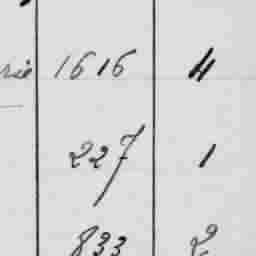 1616 4
227 1
833 2